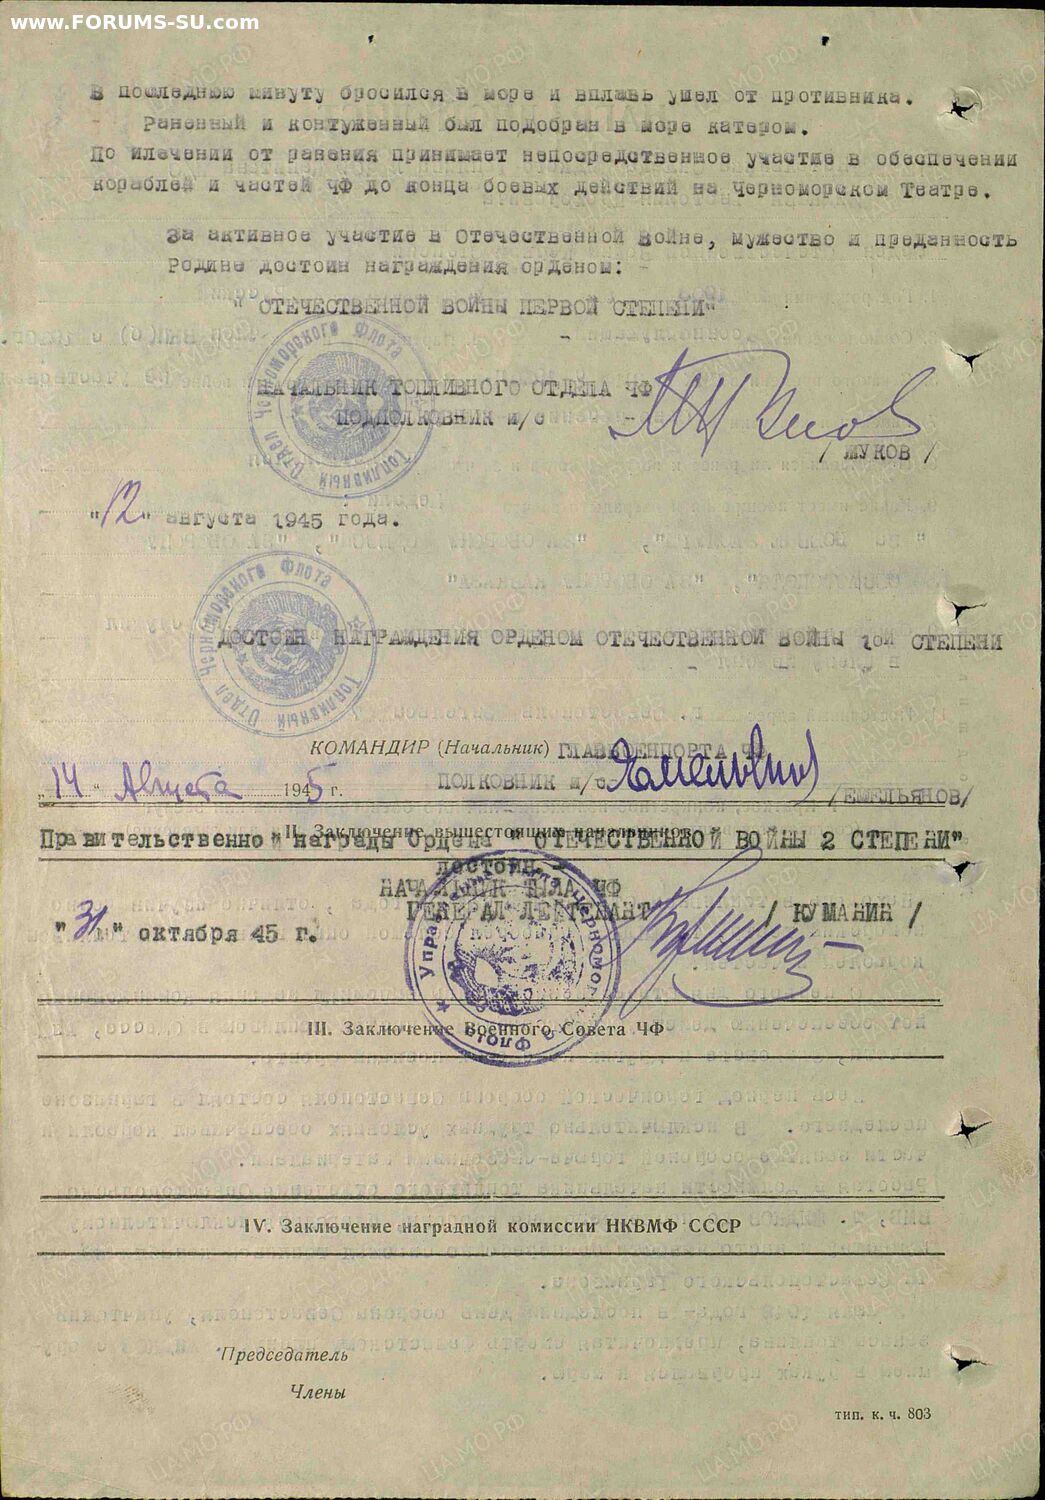 www.FORUMS-SU.com
В последнюю минуту бросился в море и вплавь ушел от противника.
Раненный и контуженный был подобран в море катером.
По илечении от ранения принимает непосредственное участие в обеспечении
кораблей и частей ЧФ до конца боевых действий на Черноморском Театре.
За активное участие в Отечественной Войне, мужество и преданность
Родине достоин награждения орденом:
" ОТЕЧЕСТВЕННОЙ ВОЙНЫ ПЕРВОЙ СТЕПЕНИ"
НАЧАЛЬНИК ТОПЛИВНОГО ОТДЕЛА ЧФ
ПОДПОЛКОВНИК и/с
/ ЖУКОВ /
"12" августа 1945 года.
Топливный Отдел Черноморского Флота
Топливный Отдел Черноморского Флота
ДОСТОИН НАГРАЖДЕНИЯ ОРДЕНОМ ОТЕЧЕСТВЕННОЙ ВОЙНЫ 1ой СТЕПЕНИ
КОМАНДИР (Начальник) ГЛАВВОЕНПОРТА ЧФ
ПОЛКОВНИК и/с-
"14" Августа 1945 г.
/ЕМЕЛЬЯНОВ/
II. Заключение вышестоящих начальников
Правительственной награды Ордена " ОТЕЧЕСТВЕННОЙ ВОЙНЫ 2 СТЕПЕНИ"
достоин.-
НАЧАЛЬНИК ТЫЛА ЧФ
ГЕНЕРАЛ ЛЕЙТЕНАНТ / КУМАНИН /
"31" октября 45 г.
III. Заключение Военного Совета ЧФ
IV. Заключение наградной комиссии НКВМФ СССР
Председатель
Члены
тип. к. ч. 803